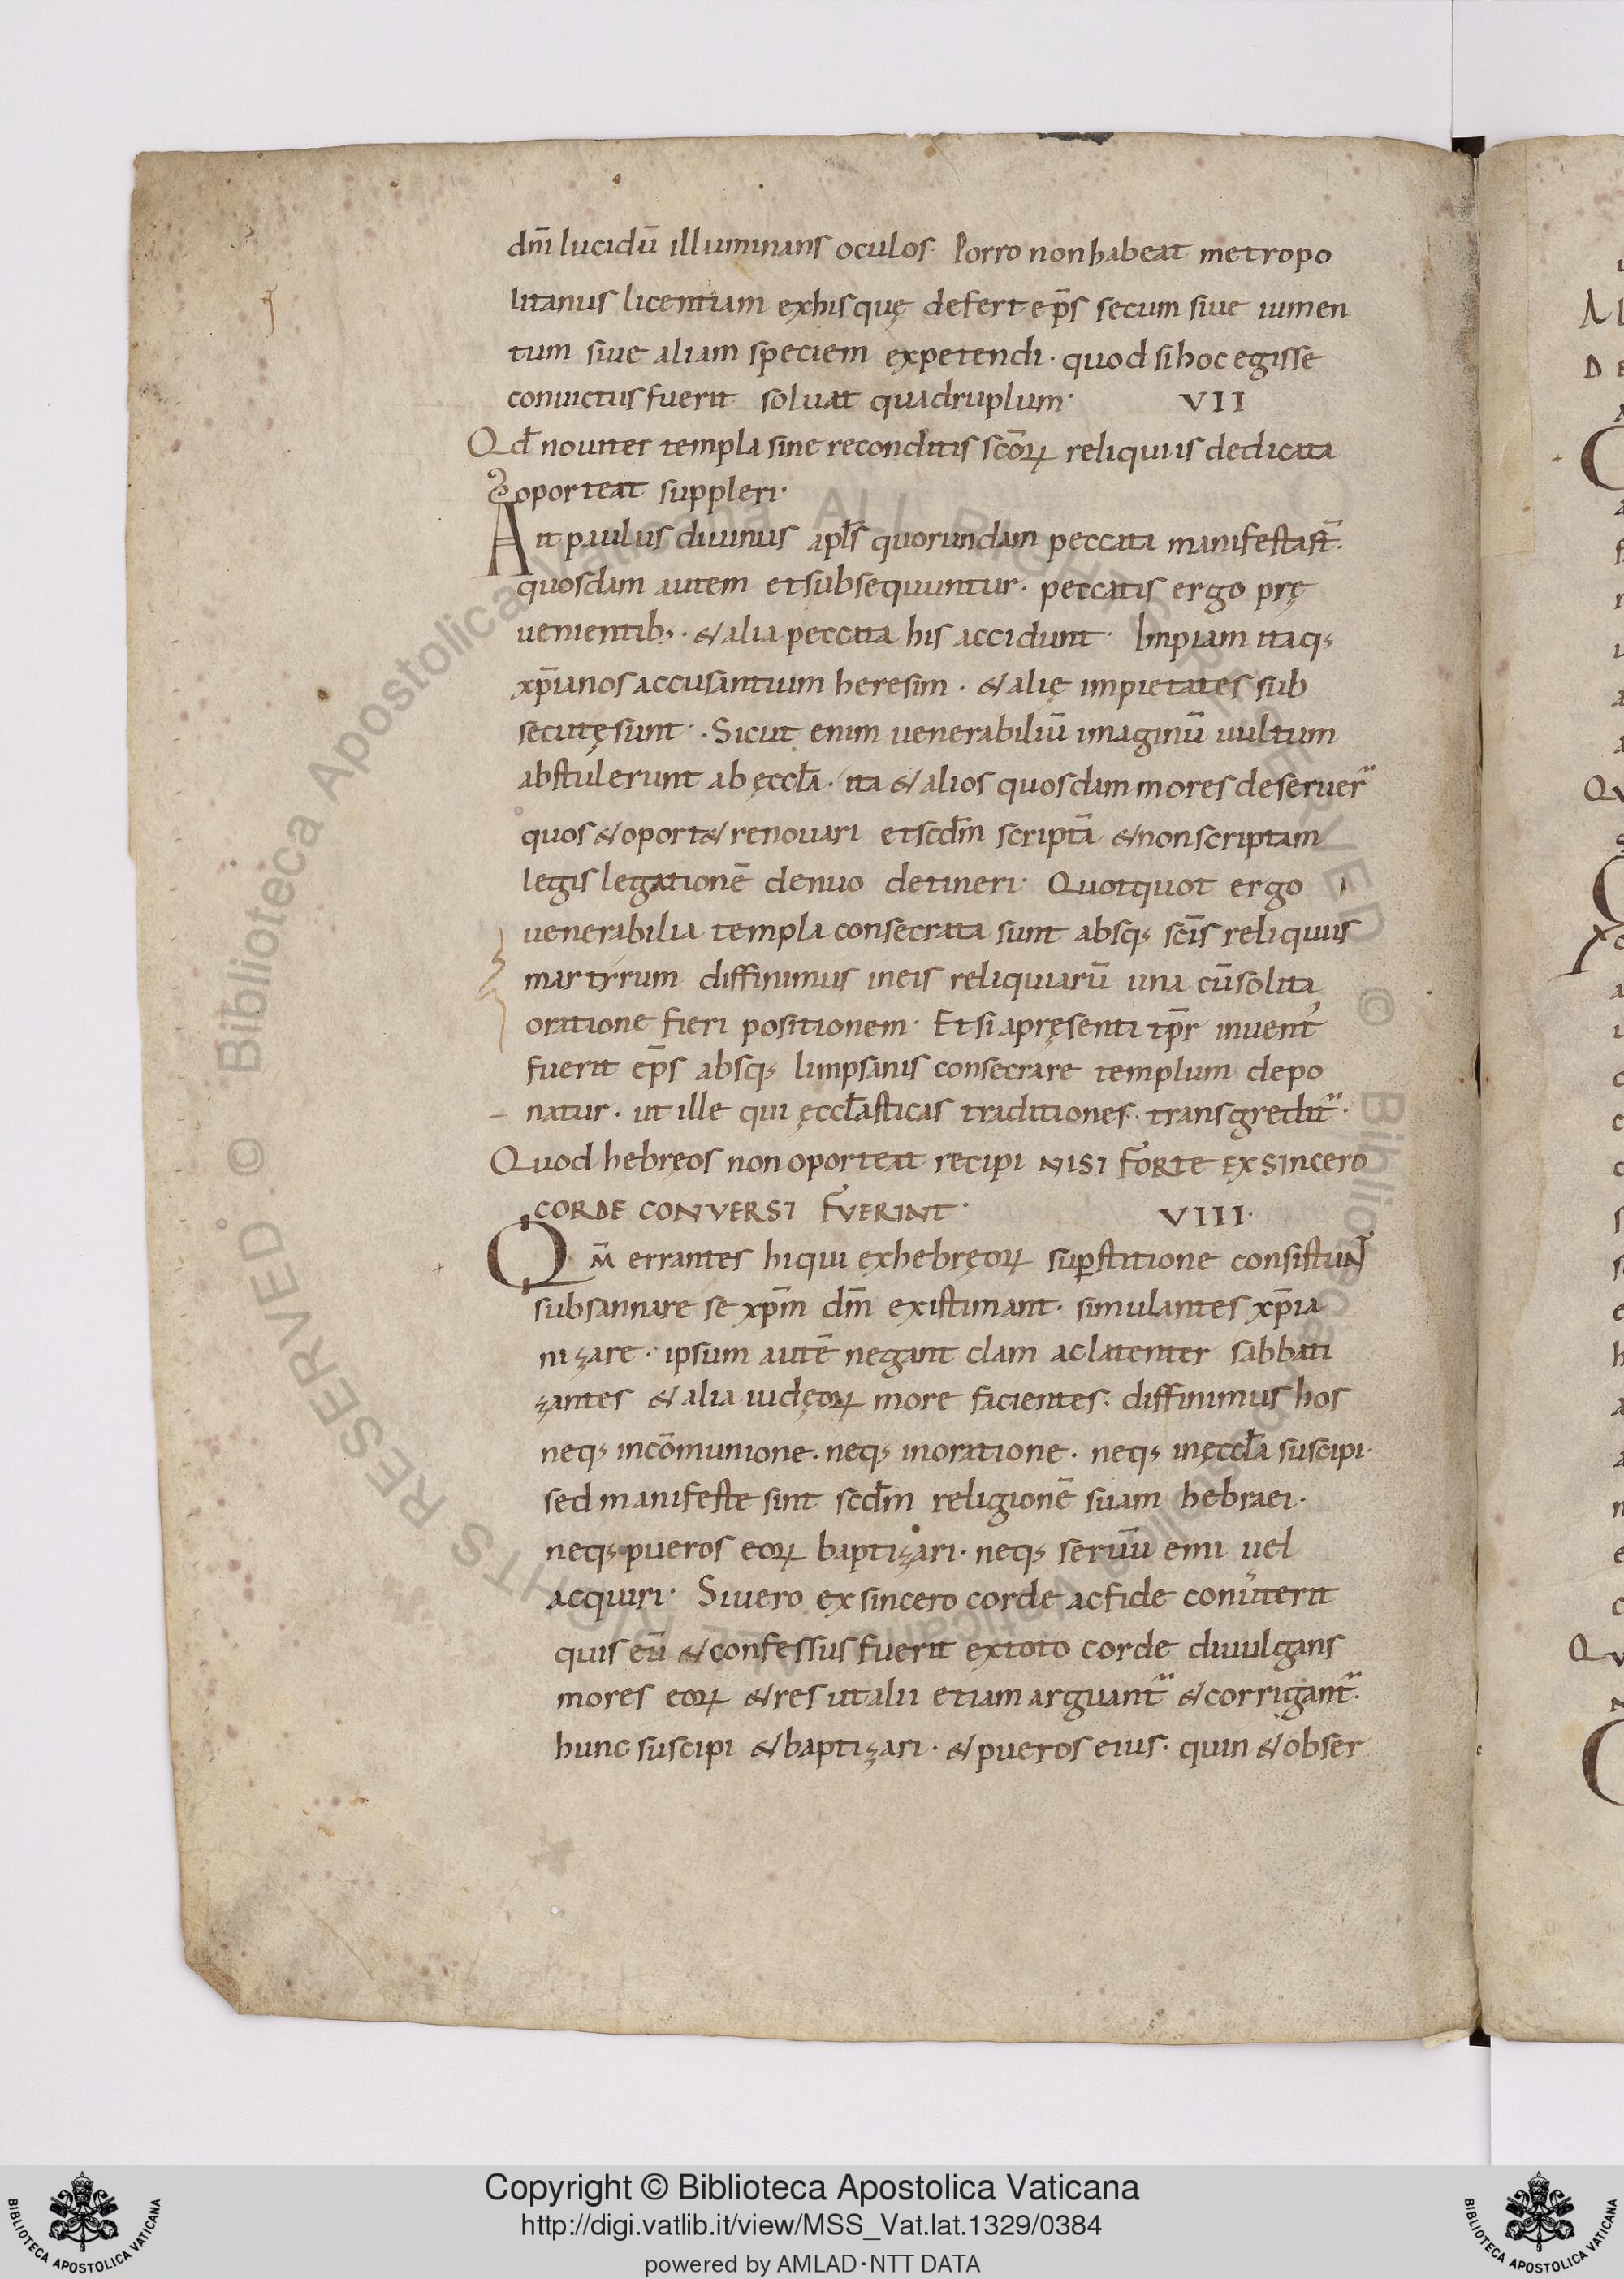 dn̄i lucidū illuminans oculos· Porro non habeat metropo
litanus licentiam ex his quę defert ep̄s secum siue iumen
tum siue aliam speciem expetendi· quod si hoc egisse
conuictus fuerit soluat quadruplum· VII
Qđ nouiter templa sine reconditis sc̄oꝝ reliquiis dedicata
oporteat suppleri·
Ait paulus diuinus apl̄s quorundam peccata manifesta st̄·
quosdam autem et subsequuntur· peccatis ergo prę
uenientib;· & alia peccata his accidunt· Impiam itaq;
xp̄ianos accusantium heresim· & alię impietates sub
secutę sunt·. Sicut enim uenerabiliū imaginū uultum
abstulerunt ab ęccl̄a· ita & alios quosdam mores deseruer̄
quos & oport& renouari et scd̄m scriptā & non scriptam
legis legationē denuo detineri· Quotquot ergo
uenerabilia templa consecrata sunt absq; sc̄is reliquiis
martyrum diffinimus in eis reliquiarū una cū solita
oratione fieri positionem· Et si a pręsenti tp̄r inuent᾿
fuerit ep̄s absq; limpsanis consecrare templum depo
natur· ut ille qui ęccl̄asticas traditiones· transgredit᷑·
Quod hebręos non oporteat recipi NISI FORTE EX SINcero
CORDE CONVERSI FVERINT· VIII·
Qm̄ errantes hi qui ex hebręoꝝ suꝑstitione consistuNT
subsannare se xp̄m dm̄ existimant· simulantes xp̄ia
nizare· ipsum autē negant clam ac latenter sabbati
zantes & alia iudęoꝝ more facientes· diffinimus hos
neq; in cōmunione· neq; in oratione· neq; in ęccl̄a suscipi·
sed manifeste sint scd̄m religionē suam hebraei·
neq; pueros eoꝝ baptizari· neq; seruū emi uel
acquiri· Si uero ex sincero corde ac fide conu᾿terit
quis eū & confessus fuerit ex toto corde diuulgans
mores eoꝝ & res ut alii etiam arguant᷑ & corrigant᷑·
hunc suscipi & baptizari· & pueros eius· quin & obser
Copyright © Biblioteca Apostolica Vaticana
http://digi.vatlib.it/view/MSS_Vat.lat.1329/0384
powered by AMLAD·NTT DATA
BIBLIOTECA APOSTOLICA VATICANA
BIBLIOTECA APOSTOLICA VATICANA